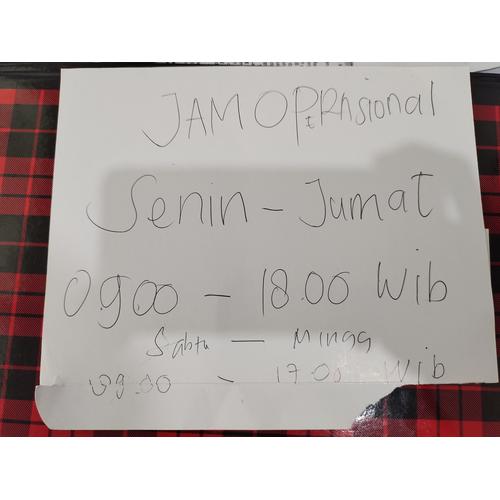 JAM OPtRASional
Senin - Jumat
09.00 - 18.00 Wib
Sabtu - Mingg
09.00 - 17.00 Wib